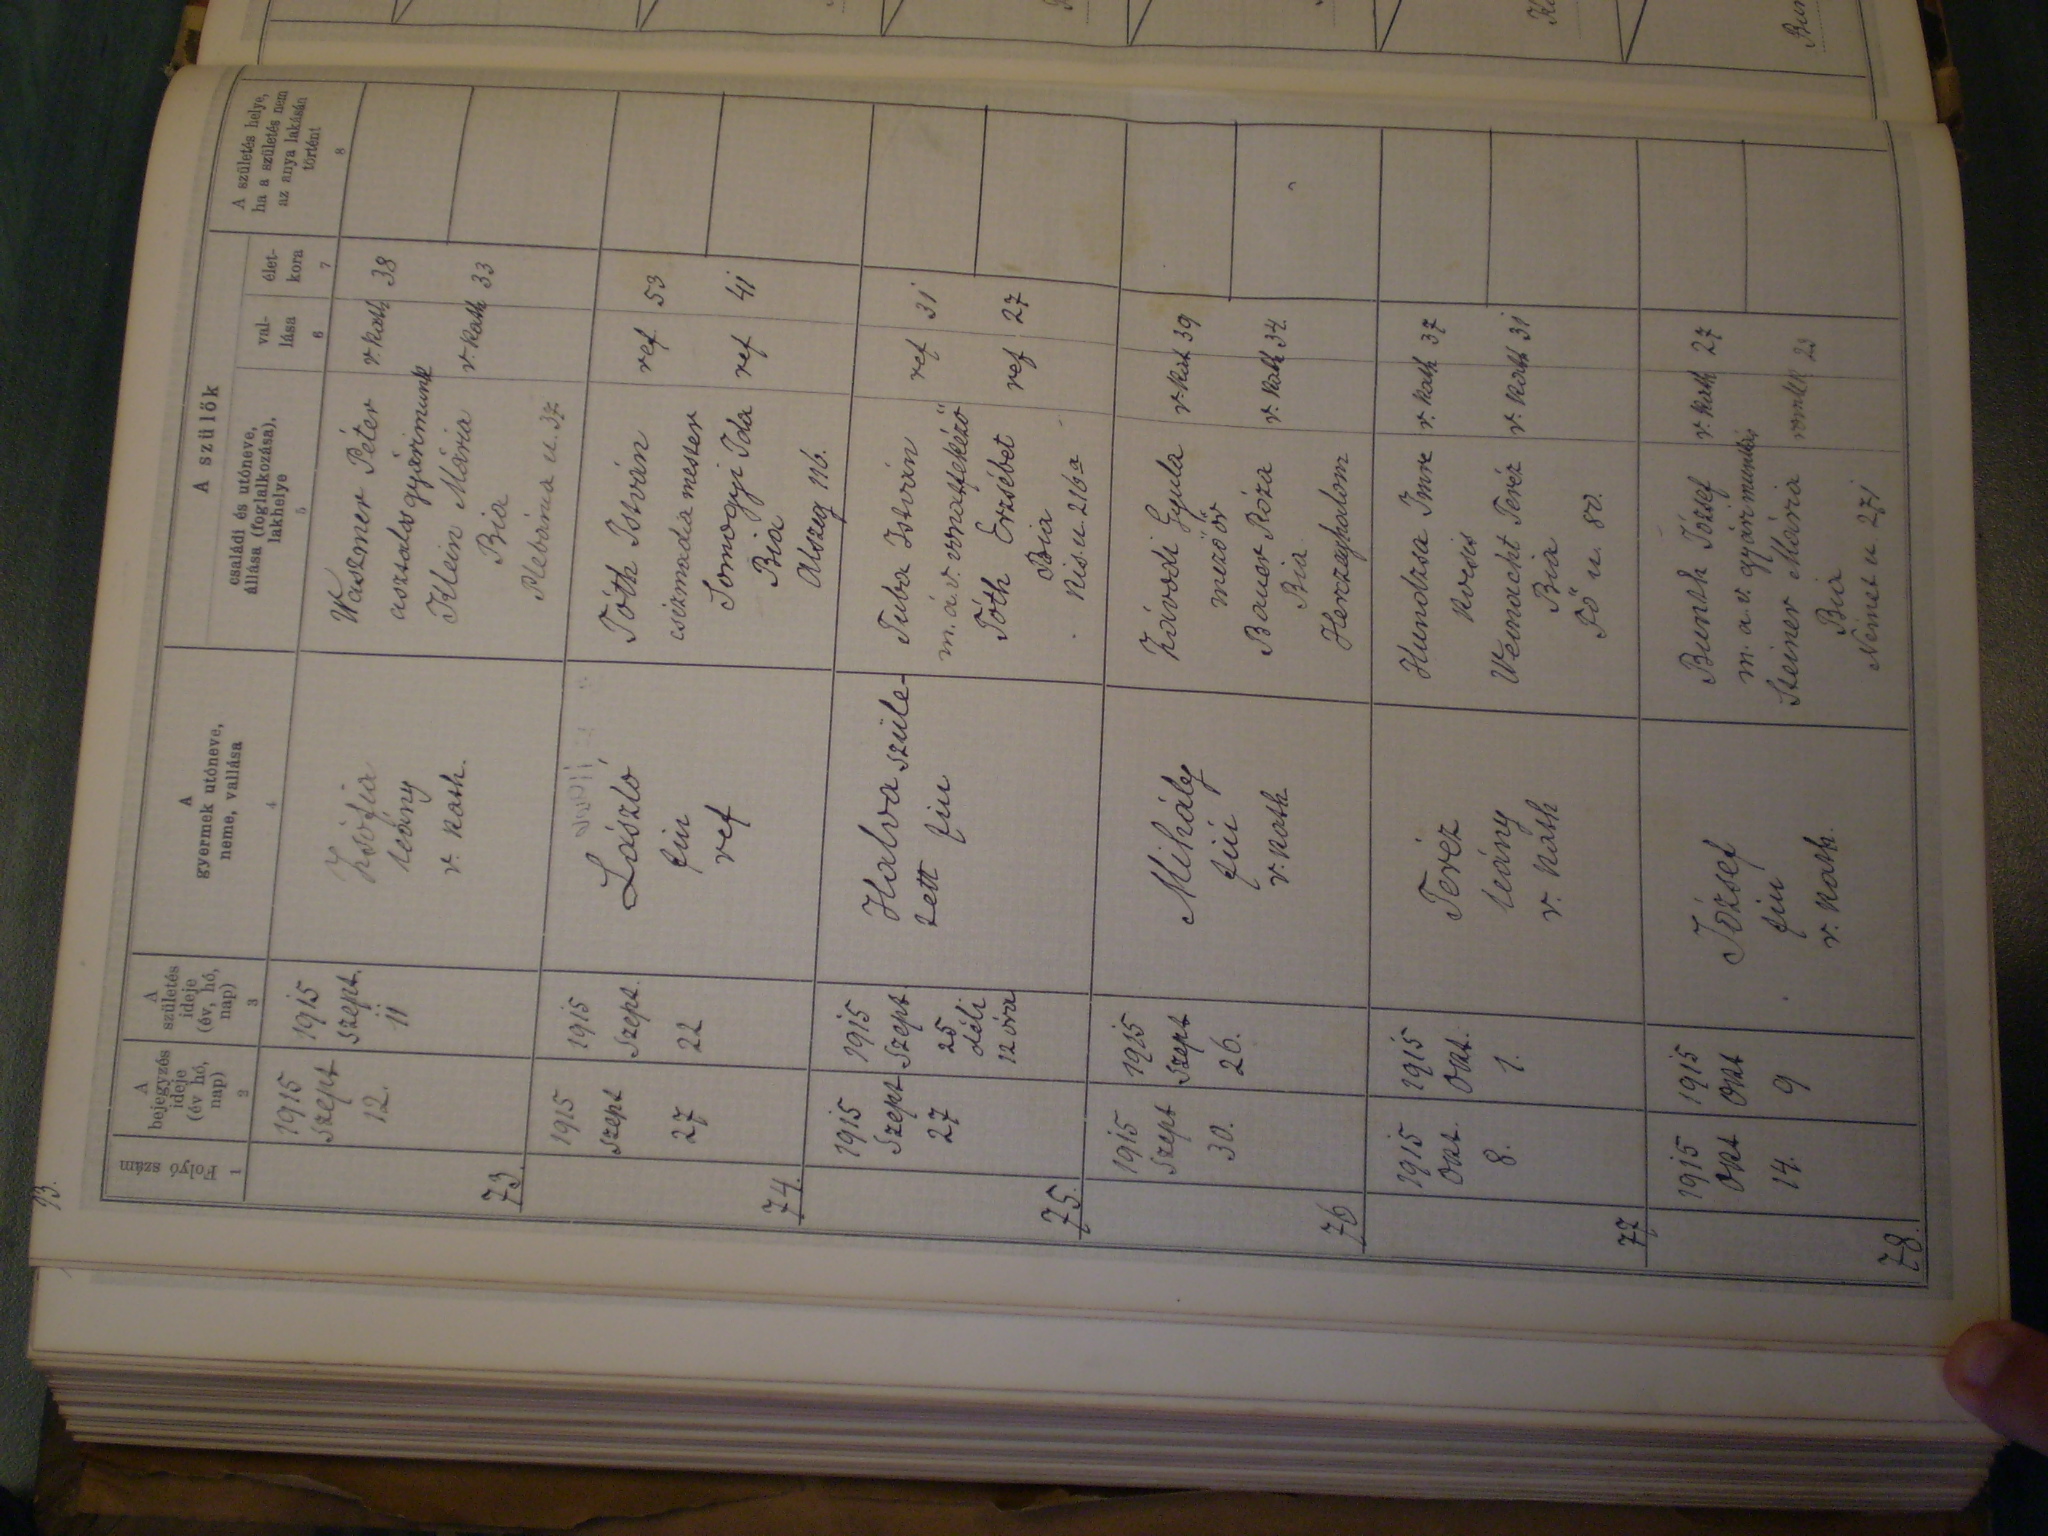 B.
Folyó szám
1
A
bejegyzés
ideje
(év hó,
nap)
2
A
születés
ideje
(év, hó,
nap)
3
A
gyermek utóneve,
neme, vallása
4
A szülők
családi és utóneve,
állása (foglalkozása),
lakhelye
5
val-
lása
6
élet-
kora
7
A születés helye,
ha a születés nem
az anya lakásán
történt
8
73.
1915
Szept
12.
1915
Szept.
11
Zsófia
leány
r. kath.
Waszner Péter
asztalos gyárimunk
Klein Mária
Bia
Plébánia u. 37
r. kath 38
r. kath 33
74.
1915
Szept
27
1915
Szept.
22
László
fiu
ref
Tóth István
csizmadia mester
Somogyi Ida
Bia
Alszeg 116.
ref 53
ref 41
75.
1915
Szept
27
1915
Szept
25
déli
12 óra
Halva szüle-
tett fiu
Tuba István
m. á. v.
Tóth Erzsébet
Bia
Kis u. 216 a
ref 31
ref 27
76
1915
Szept
30.
1915
Szept
26.
Mihály
fiú
r. kath
Kávodi Gyula
mezőőr
Bauer Róza
Bia
Herczeghalom
r. kat 39
r. kath 34.
77
1915
Okt.
8.
1915
Okt.
1.
Teréz
leány
r. káth
Hundzsa Imre
kocsis
Weinacht Teréz
Bia
Fő u. 80.
r. kath 37
r. kath 31
78.
1915
Okt
14.
1915
Okt
9
József
fiu
r. kath.
Bunth József
m. a. v. gyári munkás
Szeiner Mária
Bia
Német u 271
r. kath 27
23